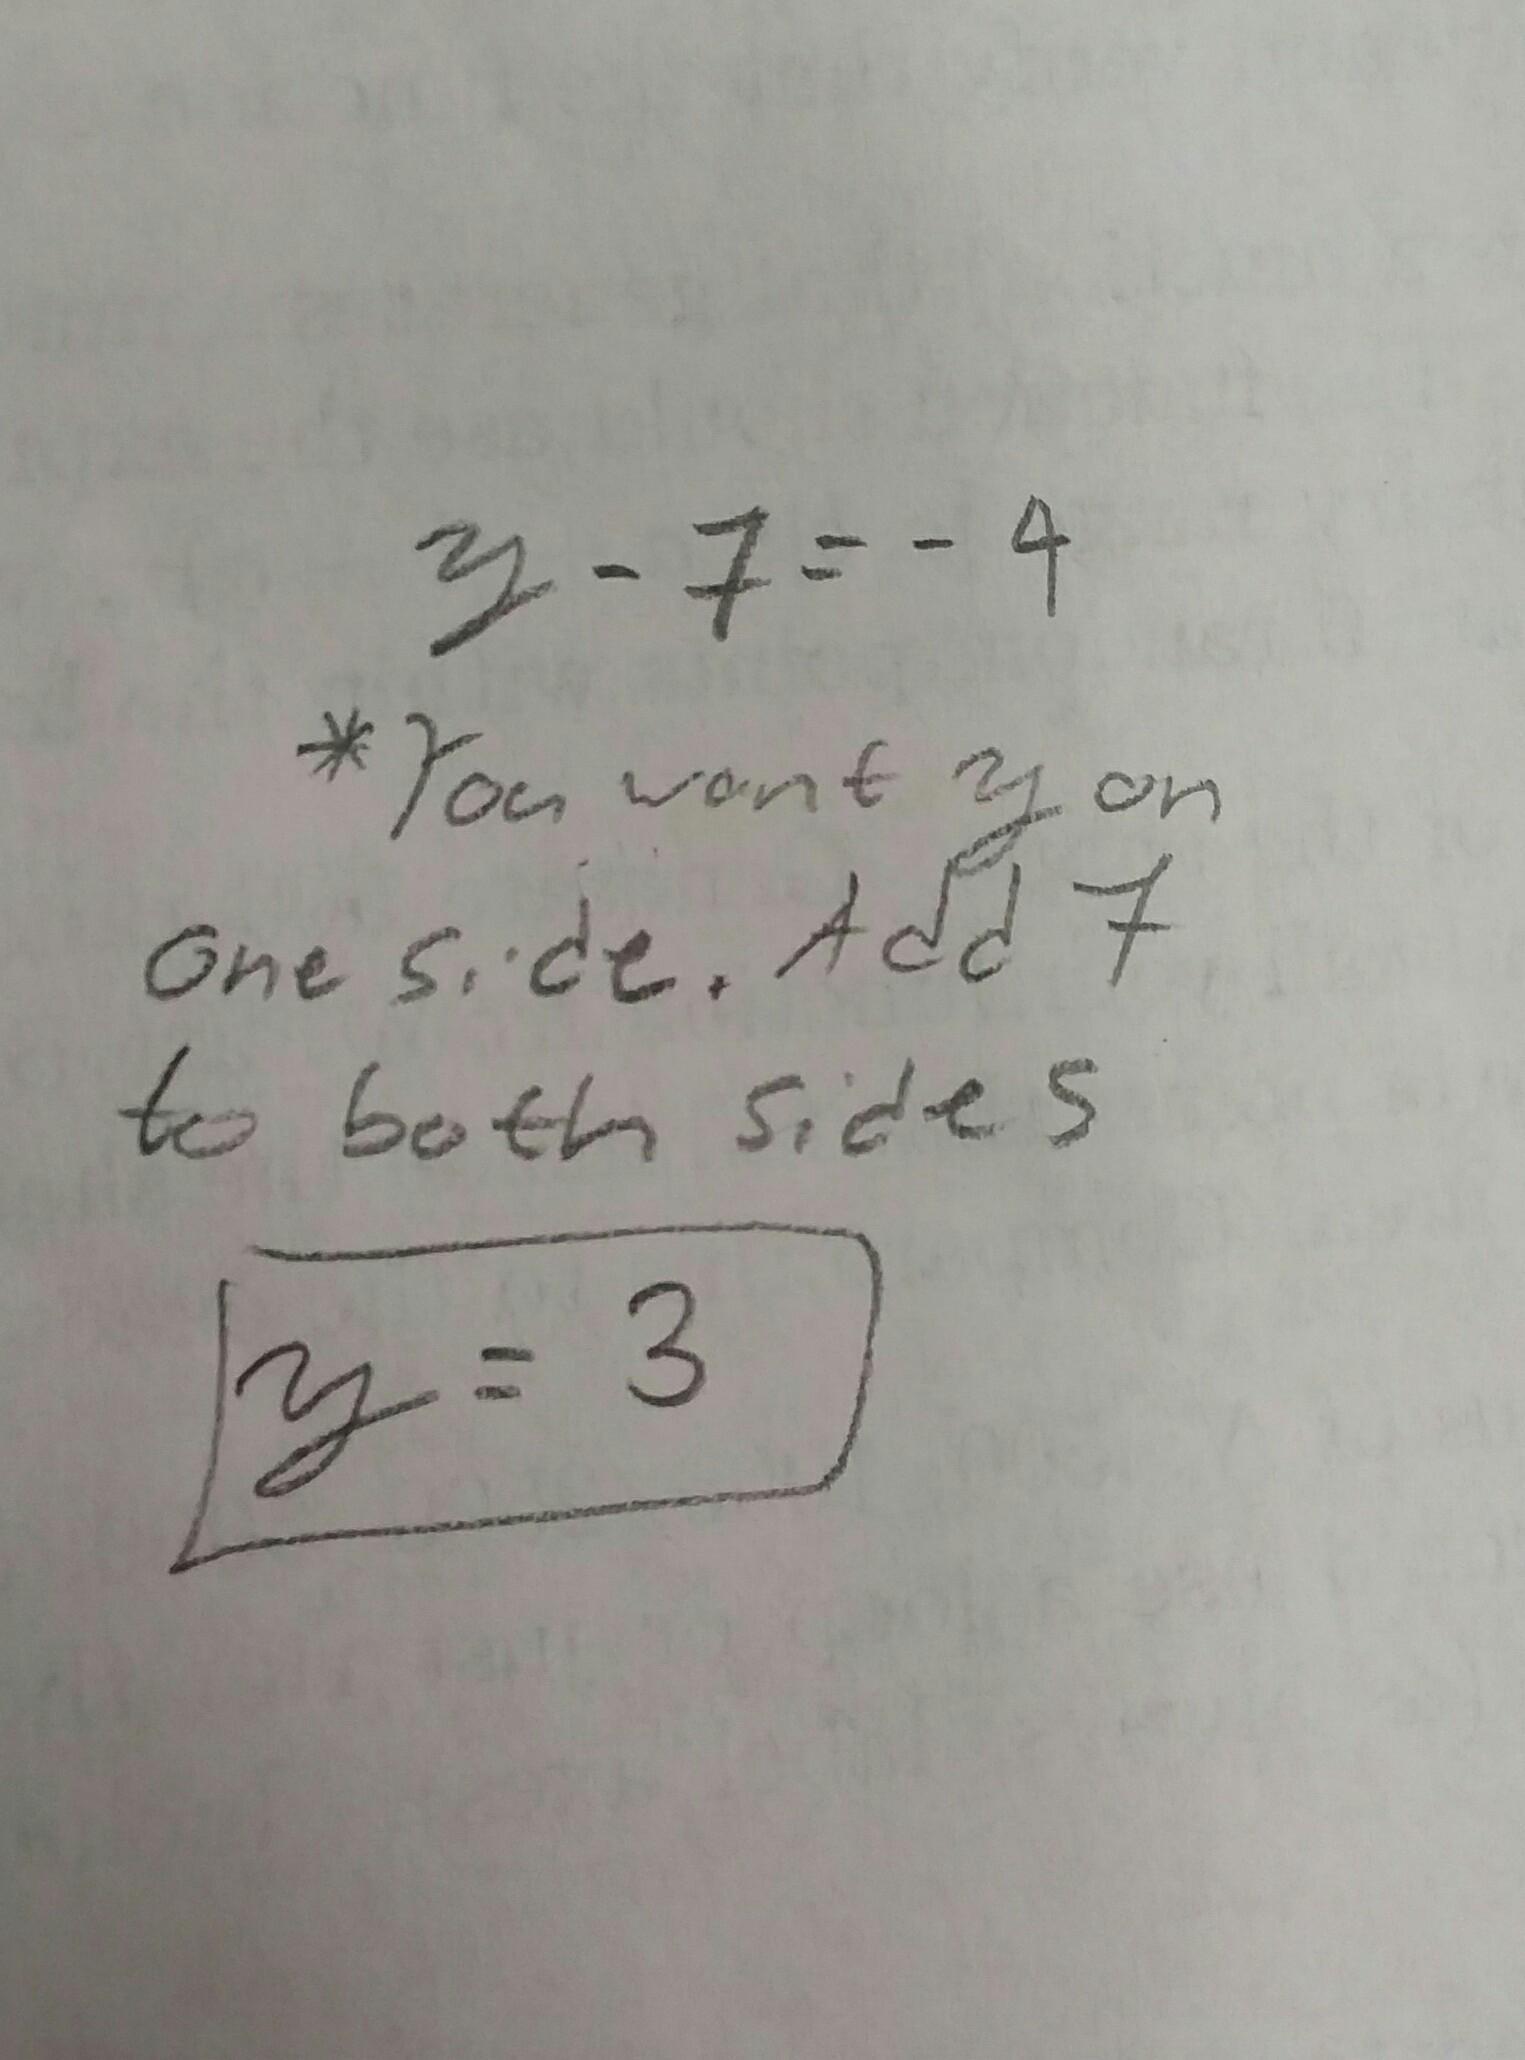 y - 7 = - 4
*You want y on
one side. Add 7
to both sides
y = 3